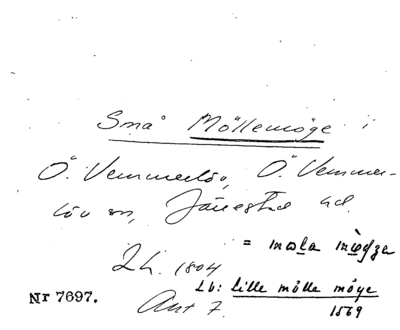 Små Möllemöge i
Ö. Vemmerlöv, Ö. Vemmer-
löv sn, Järrestad hd.
= mɷla mɷ̀gza
Lh. 1804
Lb: lille mölle möye
Nr 7697. Ant 7. 1569